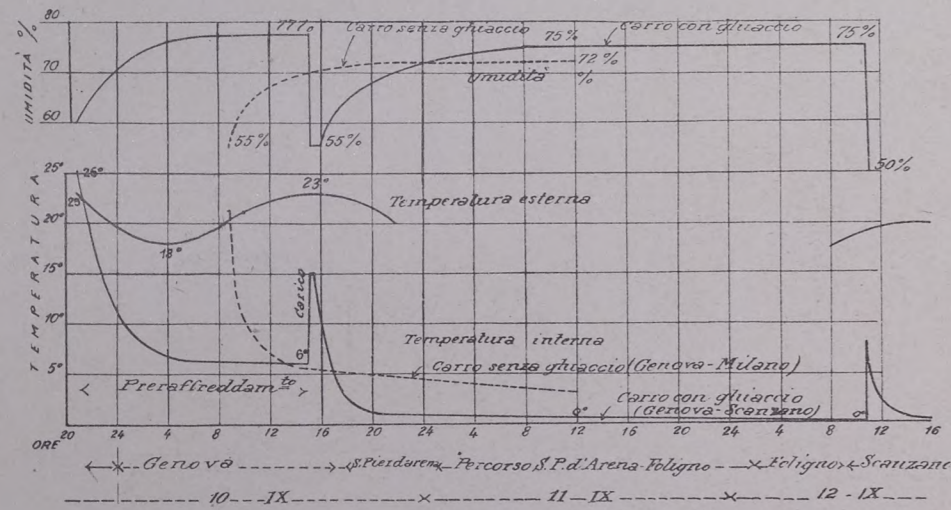 UMIDITÀ %
80
70
60
77%
Carro senza ghiaccio
75%
Carro con ghiaccio
75%
72%
Umidità %
55%
55%
50%
TEMPERATURA
25°
20°
15°
10°
5°
26°
23°
18°
23°
Temperatura esterna
Carico
6°
Temperatura interna
Carro senza ghiaccio (Genova-Milano)
Carro con ghiaccio
(Genova-Scanzano)
Preraffreddam.to
0°
0°
ORE
20 24 4 8 12 16 20 24 4 8 12 16 20 24 4 8 12 16
Genova S.Pierdarena Percorso S.P.d'Arena-Foligno Foligno Scanzano
10 - IX 11 - IX 12 - IX